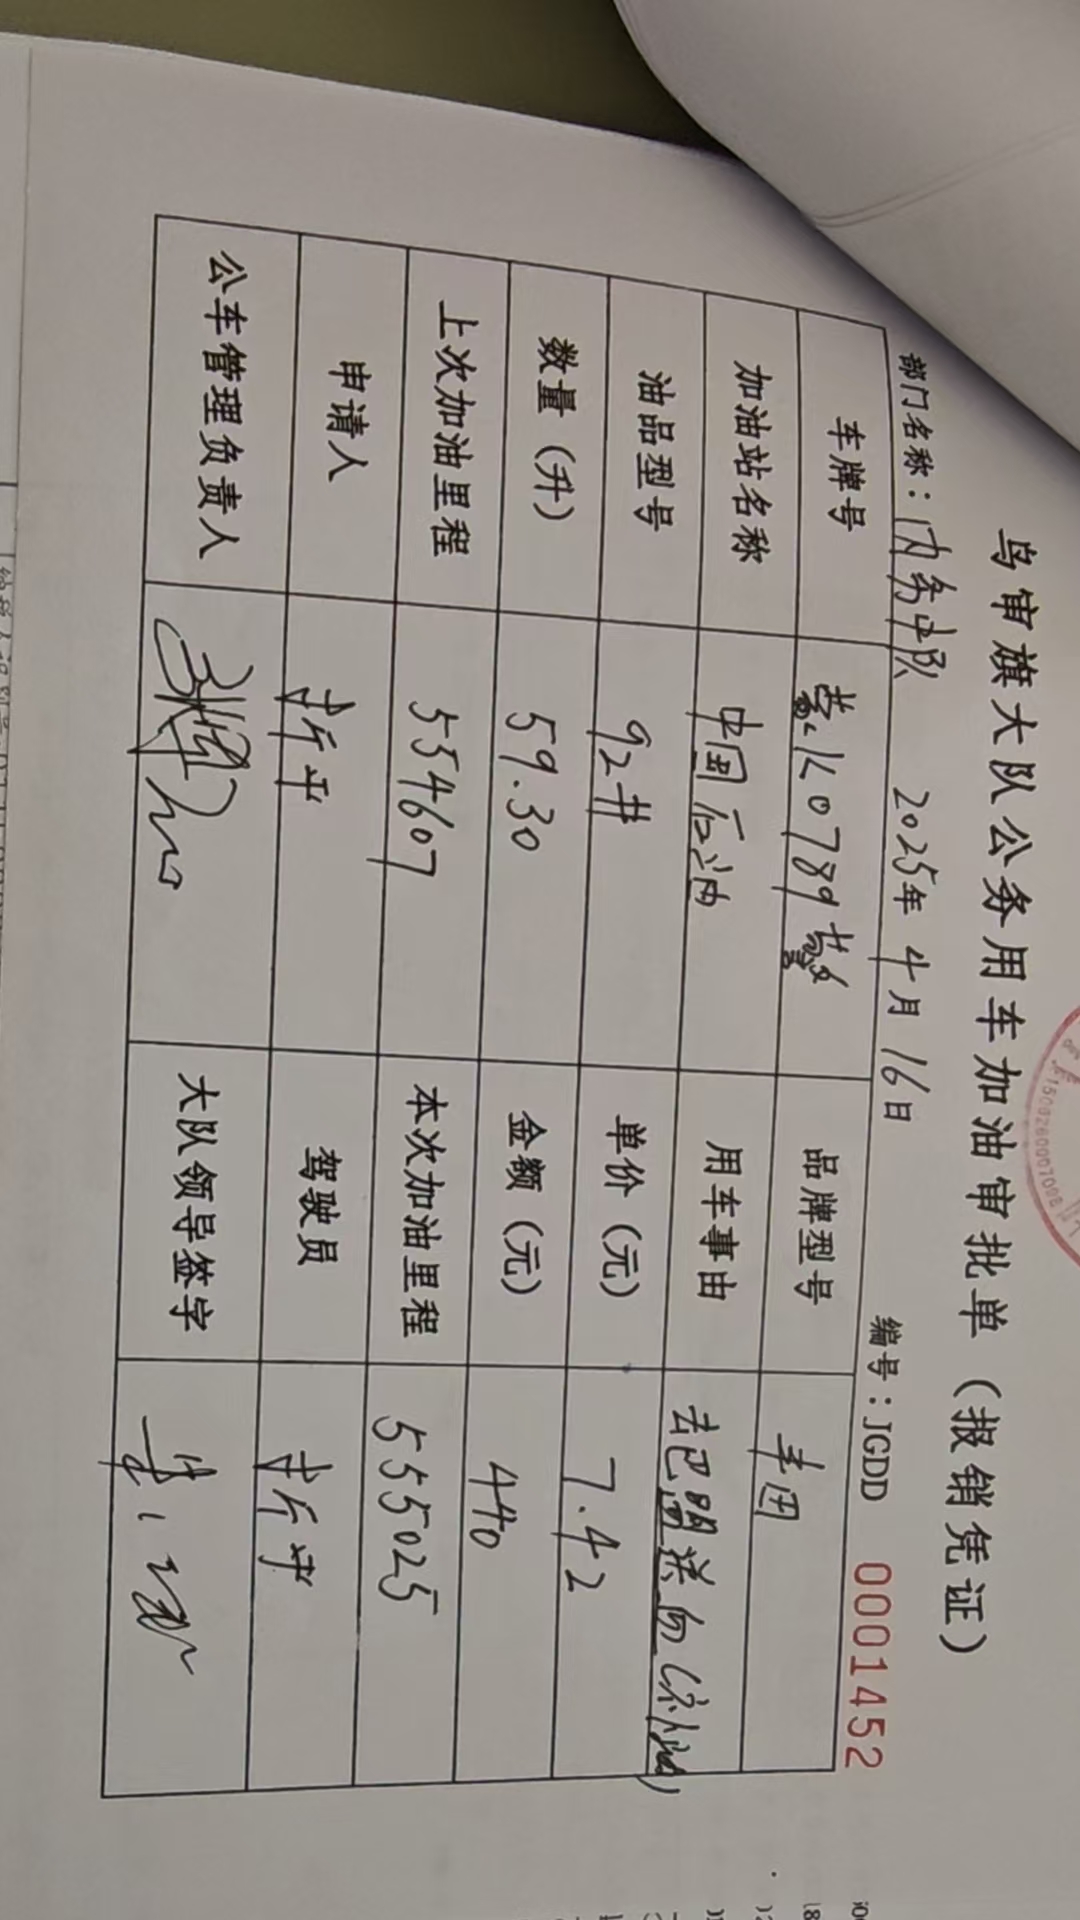 乌审旗大队公务用车加油审批单（报销凭证）
部门名称：内务中队 2025年4月16日 编号：JGDD 0001452
车牌号 蒙K0789警 品牌型号 丰田
加油站名称 中国石油 用车事由 去巴盟送
油品型号 92# 单价（元） 7.42
数量（升） 59.30 金额（元） 440
上次加油里程 554607 本次加油里程 555025
申请人 驾驶员
公车管理负责人 大队领导签字
1508260007098